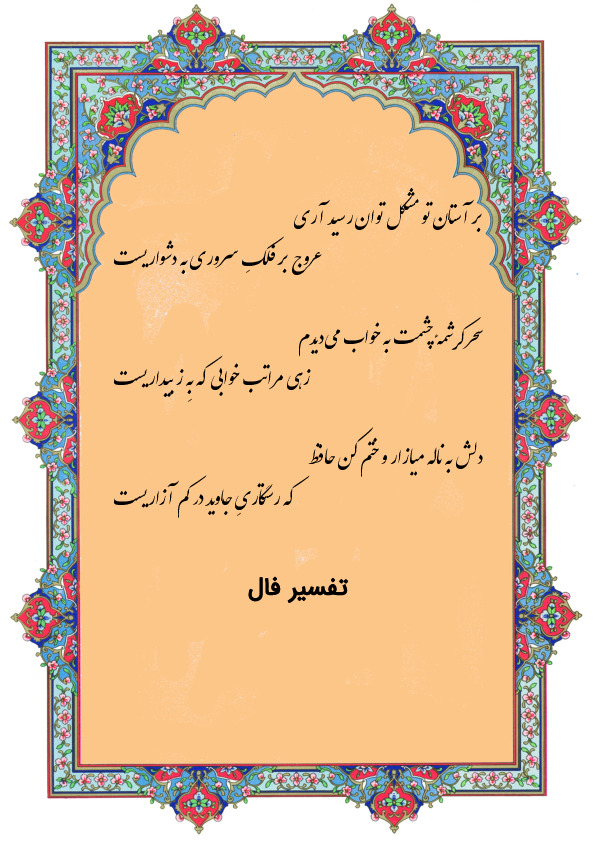 بر آستان تو مشکل توان رسید آری
عروج بر فلکِ سروری به دشواریست
سحر کرشمهٔ چشمت به خواب می‌دیدم
زهی مراتب خوابی که بِه ز بیداریست
دلش به ناله میازار و ختم کن حافظ
که رستگاریِ جاوید در کم آزاریست
تفسیر فال